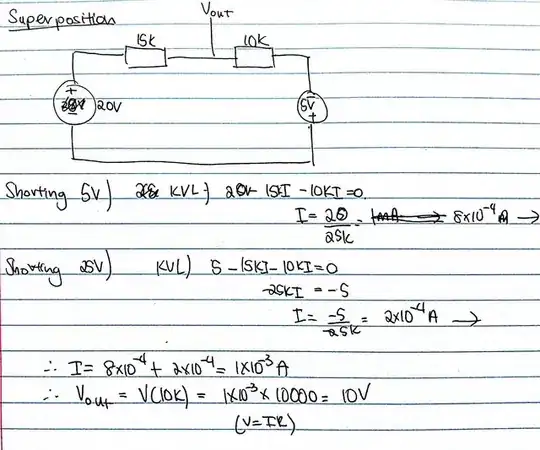 Superposition
Vout
15K
10K
+
-
20V
5V
-
+
Shorting 5V) KVL) 20 - 15KI - 10KI = 0
I = 20/25K = 8x10^-4 A →
Shorting 25V) KVL) 5 - 15KI - 10KI = 0
-25KI = -5
I = -5/-25K = 2x10^-4 A →
∴ I = 8x10^-4 + 2x10^-4 = 1x10^-3 A
∴ Vout = V(10K) = 1x10^-3 x 10000 = 10V
(V=IR)